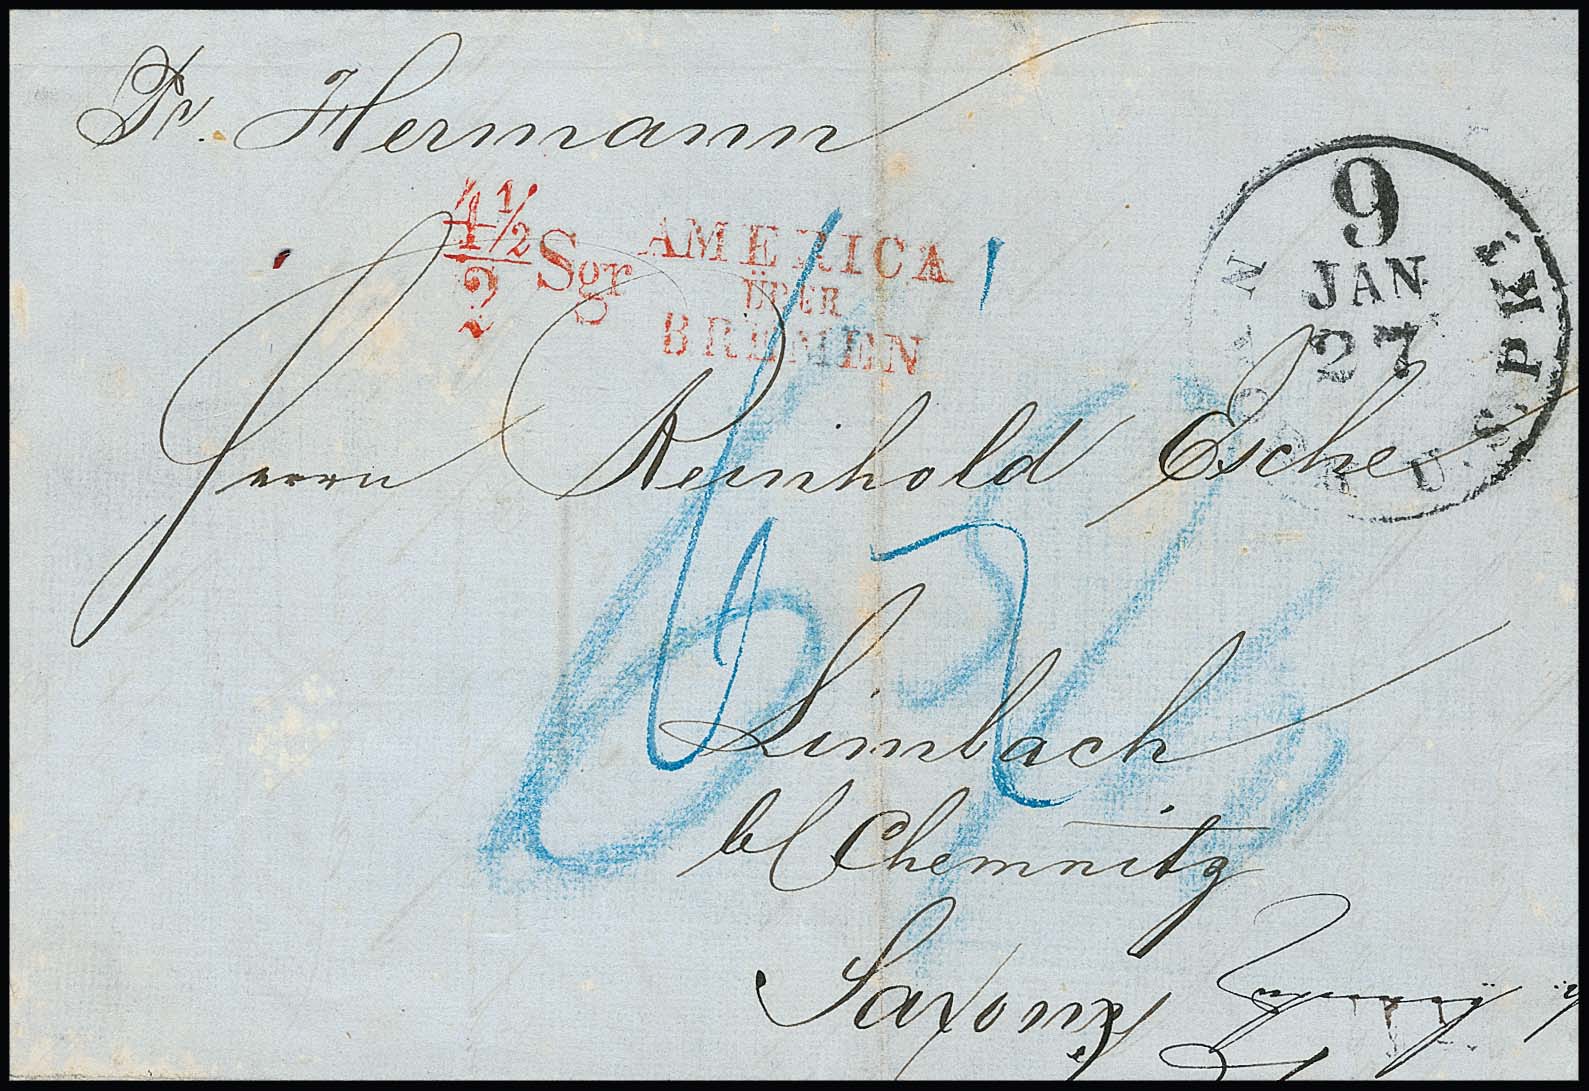 Pr. Hermann
4½/2 Sgr
AMERICA
ÜBER
BREMEN
N. YORK U.S. PKT.
9
JAN
27
Herrn Reinhold Esche
Limbach
b/ Chemnitz
Saxony